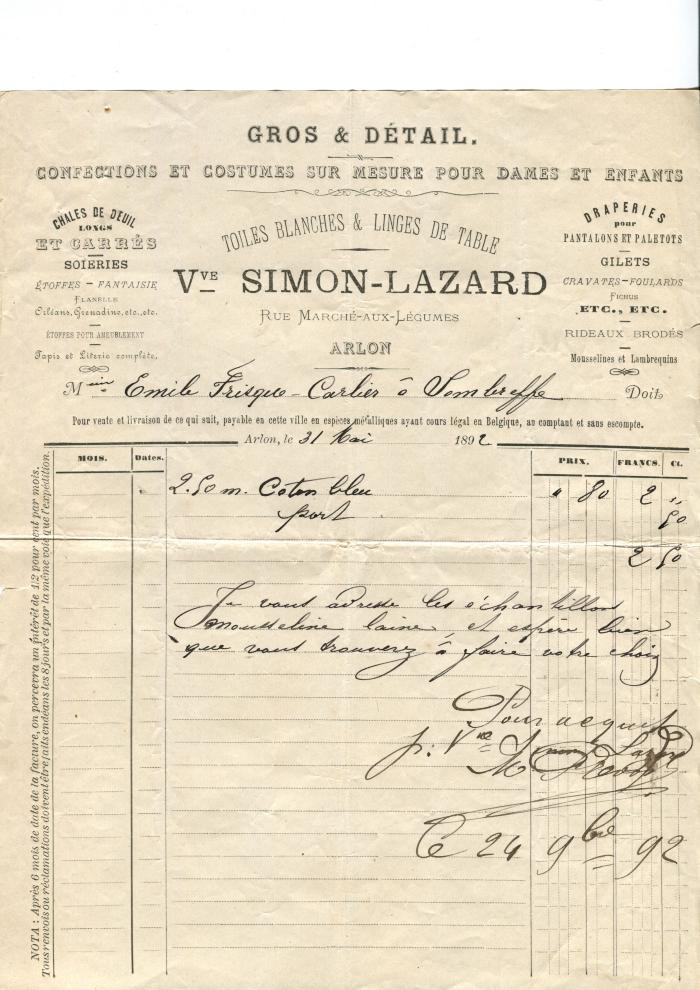 GROS & DÉTAIL.
CONFECTIONS ET COSTUMES SUR MESURE POUR DAMES ET ENFANTS
CHALES DE DEUIL
LONGS
ET CARRÉS
SOIERIES
ÉTOFFES - FANTAISIE
FLANELLE
Orléans, Grenadine, etc., etc.
ÉTOFFES POUR AMEUBLEMENT
Tapis et Literie complète,
TOILES BLANCHES & LINGES DE TABLE
Vve SIMON-LAZARD
RUE MARCHÉ-AUX-LÉGUMES
ARLON
DRAPERIES
pour
PANTALONS ET PALETOTS
GILETS
CRAVATES-FOULARDS
FICHUS
ETC., ETC.
RIDEAUX BRODÉS
Mousselines et Lambrequins
M Emile Frisque-Carlier à Sombreffe Doit
Pour vente et livraison de ce qui suit, payable en cette ville en espèces métalliques ayant cours légal en Belgique, au comptant et sans escompte.
Arlon, le 31 Mai 1892
MOIS. Dates. PRIX. FRANCS. Ct.
2.50 m. Coton bleu " 80 2 "
port 50
2 50
Je vous adresse les échantillons
mousseline laine, et espère bien
que vous trouverez à faire votre choix
Pour acquit
p: Vve Simon Lazard
24 9bre 92
NOTA : Après 6 mois de date de la facture, on percevra un intérêt de 1/2 pour cent par mois.
Tous renvois ou réclamations doivent être faits endéans les 8 jours et par la même voie que l'expédition.